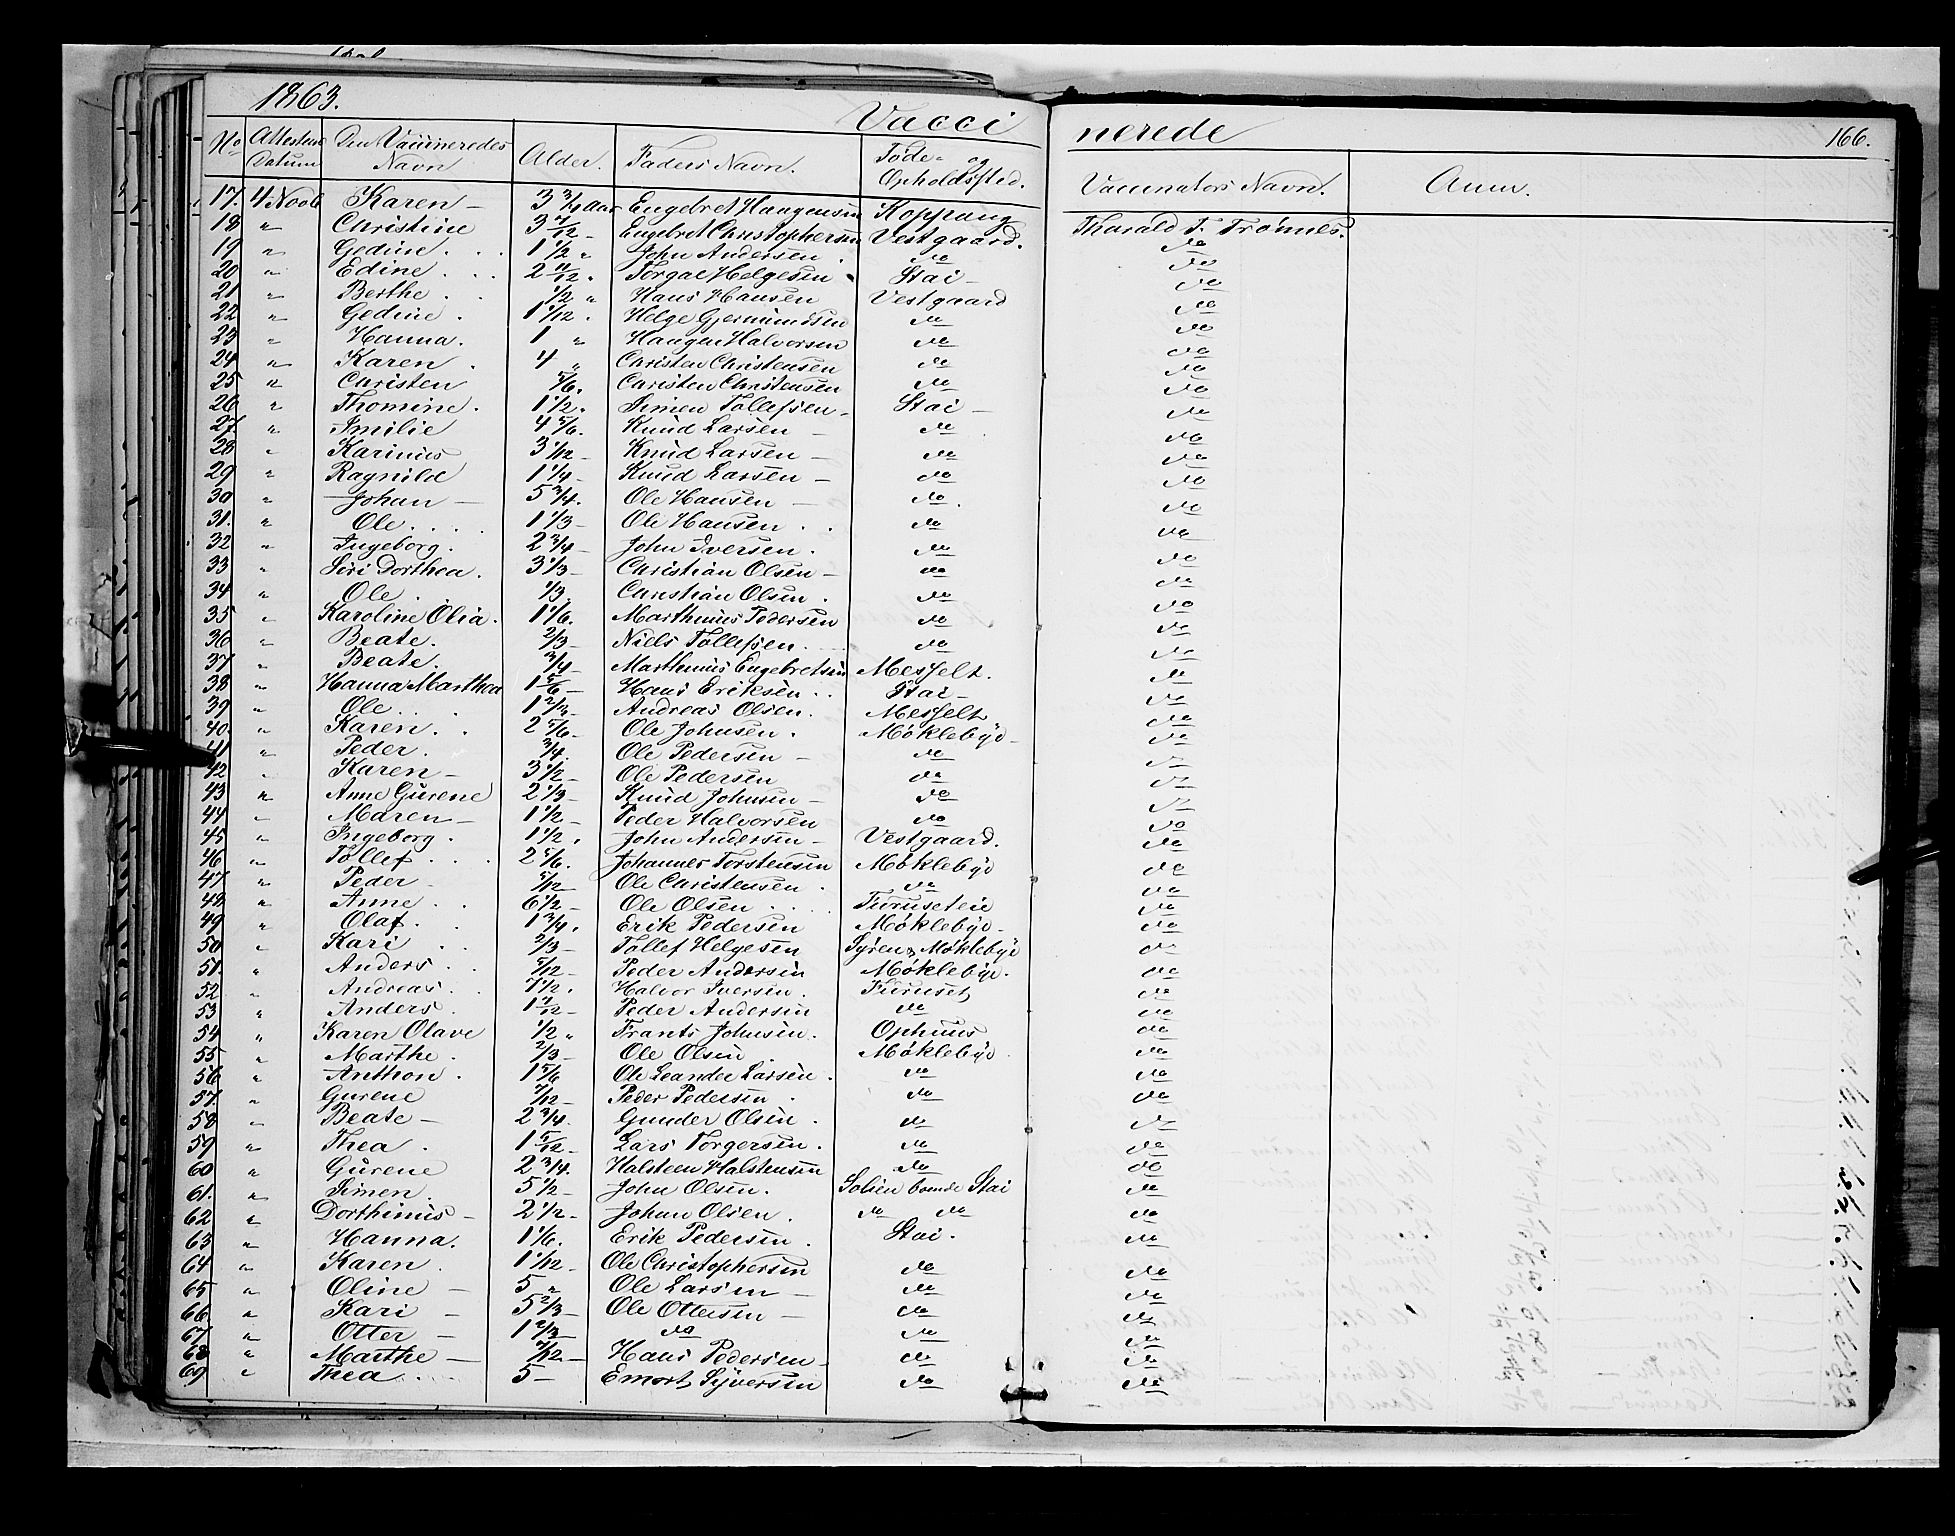 1863.
Vaccinerede
166.
No Attestens Datum Den Vaccineredes Navn Alder. Faders Navn. Føde- og Opholdssted. Vaccinators Navn. Anm.
17. 4 Novb Karen - 3 3/4 Aar Engebret Haagensen Koppang Tharald T. Trønnes.
18 " Christine 3 7/12 - Engebret Christophersen Vestgaard. do
19 " Gedine . . . 1 1/2 " John Andersen . do do
20 " Edine . . . 2 11/12 " Torgal Helgesen Stai - do
21 " Berthe . . 1/2 " Hans Hansen Vestgaard do
22 " Gedine . 1 1/12 . Helge Gjermundsen do do
23 " Hanna. 1 " Haagen Halvorsen do do
24 " Karen . 4 " Christen Christensen do do
25 " Christen 5/6. Christen Christensen do do
26 " Thomine . 1 1/2. Simen Tollefsen - Stai - do
27 " Imilie 4 5/6. Knud Larsen - do do
28 " Karinus 3 1/12 - Knud Larsen - do do
29 " Ragnild 1 1/4 - Knud Larsen - do do
30 " Johan - 5 3/4. Ole Hansen - do . do
31. " Ole . . . . 1 1/3 - Ole Hansen . . do do
32 " Ingeborg. 2 3/4 - John Iversen . do do
33 " Siri Dorthea . 3 1/3 - Christian Olsen - do do
34 " Ole 1/3. Christian Olsen . do do
35 " Karoline Olia . 1 1/6. Marthinus Pedersen do do
36 " Beate. 2/3 - Niels Tollefsen . do do
37 " Beate. 3/4 - Marthinus Engebretsen Messelt. do
38 " Hanna Marthea 1 5/6 - Hans Eriksen . . Stai - do
39 " Ole . . . 1 2/3 - Andreas Olsen. Messelt do
40. " Karen . . 2 5/6 - Ole Johnsen . Møklebye - do
41 " Peder . 3/4. Ole Pedersen - do do
42 " Karen - 3 1/2 - Ole Pedersen do do
43 " Anne Gurene 2 1/3 - Knud Johnsen - do do
44 " Maren - 1 1/2 - Peder Halvorsen do do
45 " Ingeborg . 1 1/2 . John Andersen - Vestgaard. do
46 " Tollef . . . 2 5/6. Johannes Torstensen Møklebye do
47 " Peder 5/12 - Ole Christensen . do do
48 " Anne . . 6 1/2 - Ole Olsen . . . Furuseteie do
49 " Olaf . . 1 3/4 . Erik Pedersen Møklebye - do
50 " Kari . . 2/3 - Tollef Helgesen Møklebye do
51. " Anders . . 5/12 - Peder Andersen Møklebye. do
52 " Andreas . . 7 1/2 . Halvor Iversen . Furuset do
53 " Anders . 1 7/12 - Peder Andersen do do
54 " Karen Olave 1/2 " Frants Johnsen . Ophuus do
55 " Marthe . 2/3 - Ole Olsen . Møklebye . do
56 " Anthon . 1 5/6 Ole Leander Larsen . do do
57. " Gurene 7/12 - Peder Pedersen . do do
58 " Beate - 2 3/4. Gunder Olsen . do do
59 " Thea . 1 5/12 - Lars Torgersen . do do
60 " Gurene 2 3/4. Halsteen Halstensen do do
61. " Simen . 5 1/2 - John Olsen . Solien boende Stai do
62 " Dorthinius - 2 1/2 - Johan Olsen . do do do
63 " Hanna. 1 1/6. Erik Pedersen . Stai . do
64 " Karen . 1 1/12 - Ole Christophersen do do
65 " Oline - 5 " Ole Larsen - do do
66 " Kari - 5 2/3 - Ole Ottersen - do do
67 " Otter - 1 2/3 - do do do
68 " Marthe - 7/12 - Hans Pedersen - do do
69 " Thea . . . 5 - Emort Syversen do do